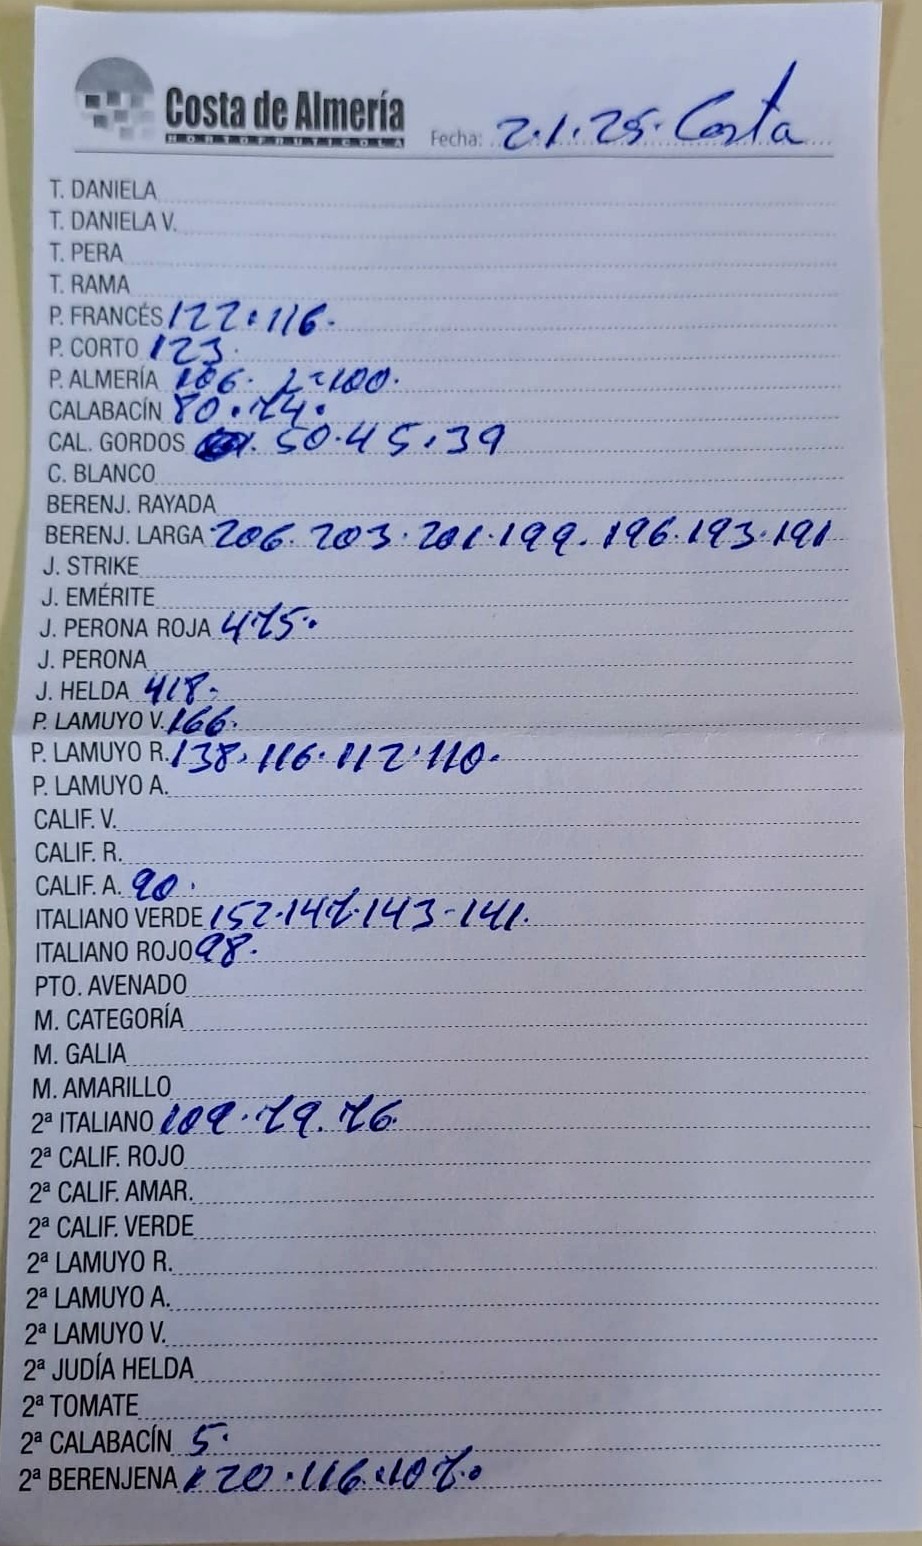 Costa de Almería
HORTOFRUTICOLA
Fecha: 2.1.25. Costa
T. DANIELA
T. DANIELA V.
T. PERA
T. RAMA
P. FRANCÉS 122.116.
P. CORTO 123.
P. ALMERÍA 106. L=100.
CALABACÍN 80.74.
CAL. GORDOS 50.45.39
C. BLANCO
BERENJ. RAYADA
BERENJ. LARGA 206.203.201.199.196.193.191
J. STRIKE
J. EMÉRITE
J. PERONA ROJA 475.
J. PERONA
J. HELDA 418.
P. LAMUYO V. 166.
P. LAMUYO R. 138.116.112.110.
P. LAMUYO A.
CALIF. V.
CALIF. R.
CALIF. A. 90.
ITALIANO VERDE 152.147.143-141.
ITALIANO ROJO 98.
PTO. AVENADO
M. CATEGORÍA
M. GALIA
M. AMARILLO
2ª ITALIANO 109.79.76.
2ª CALIF. ROJO
2ª CALIF. AMAR.
2ª CALIF. VERDE
2ª LAMUYO R.
2ª LAMUYO A.
2ª LAMUYO V.
2ª JUDÍA HELDA
2ª TOMATE
2ª CALABACÍN 5.
2ª BERENJENA 120.116.107.